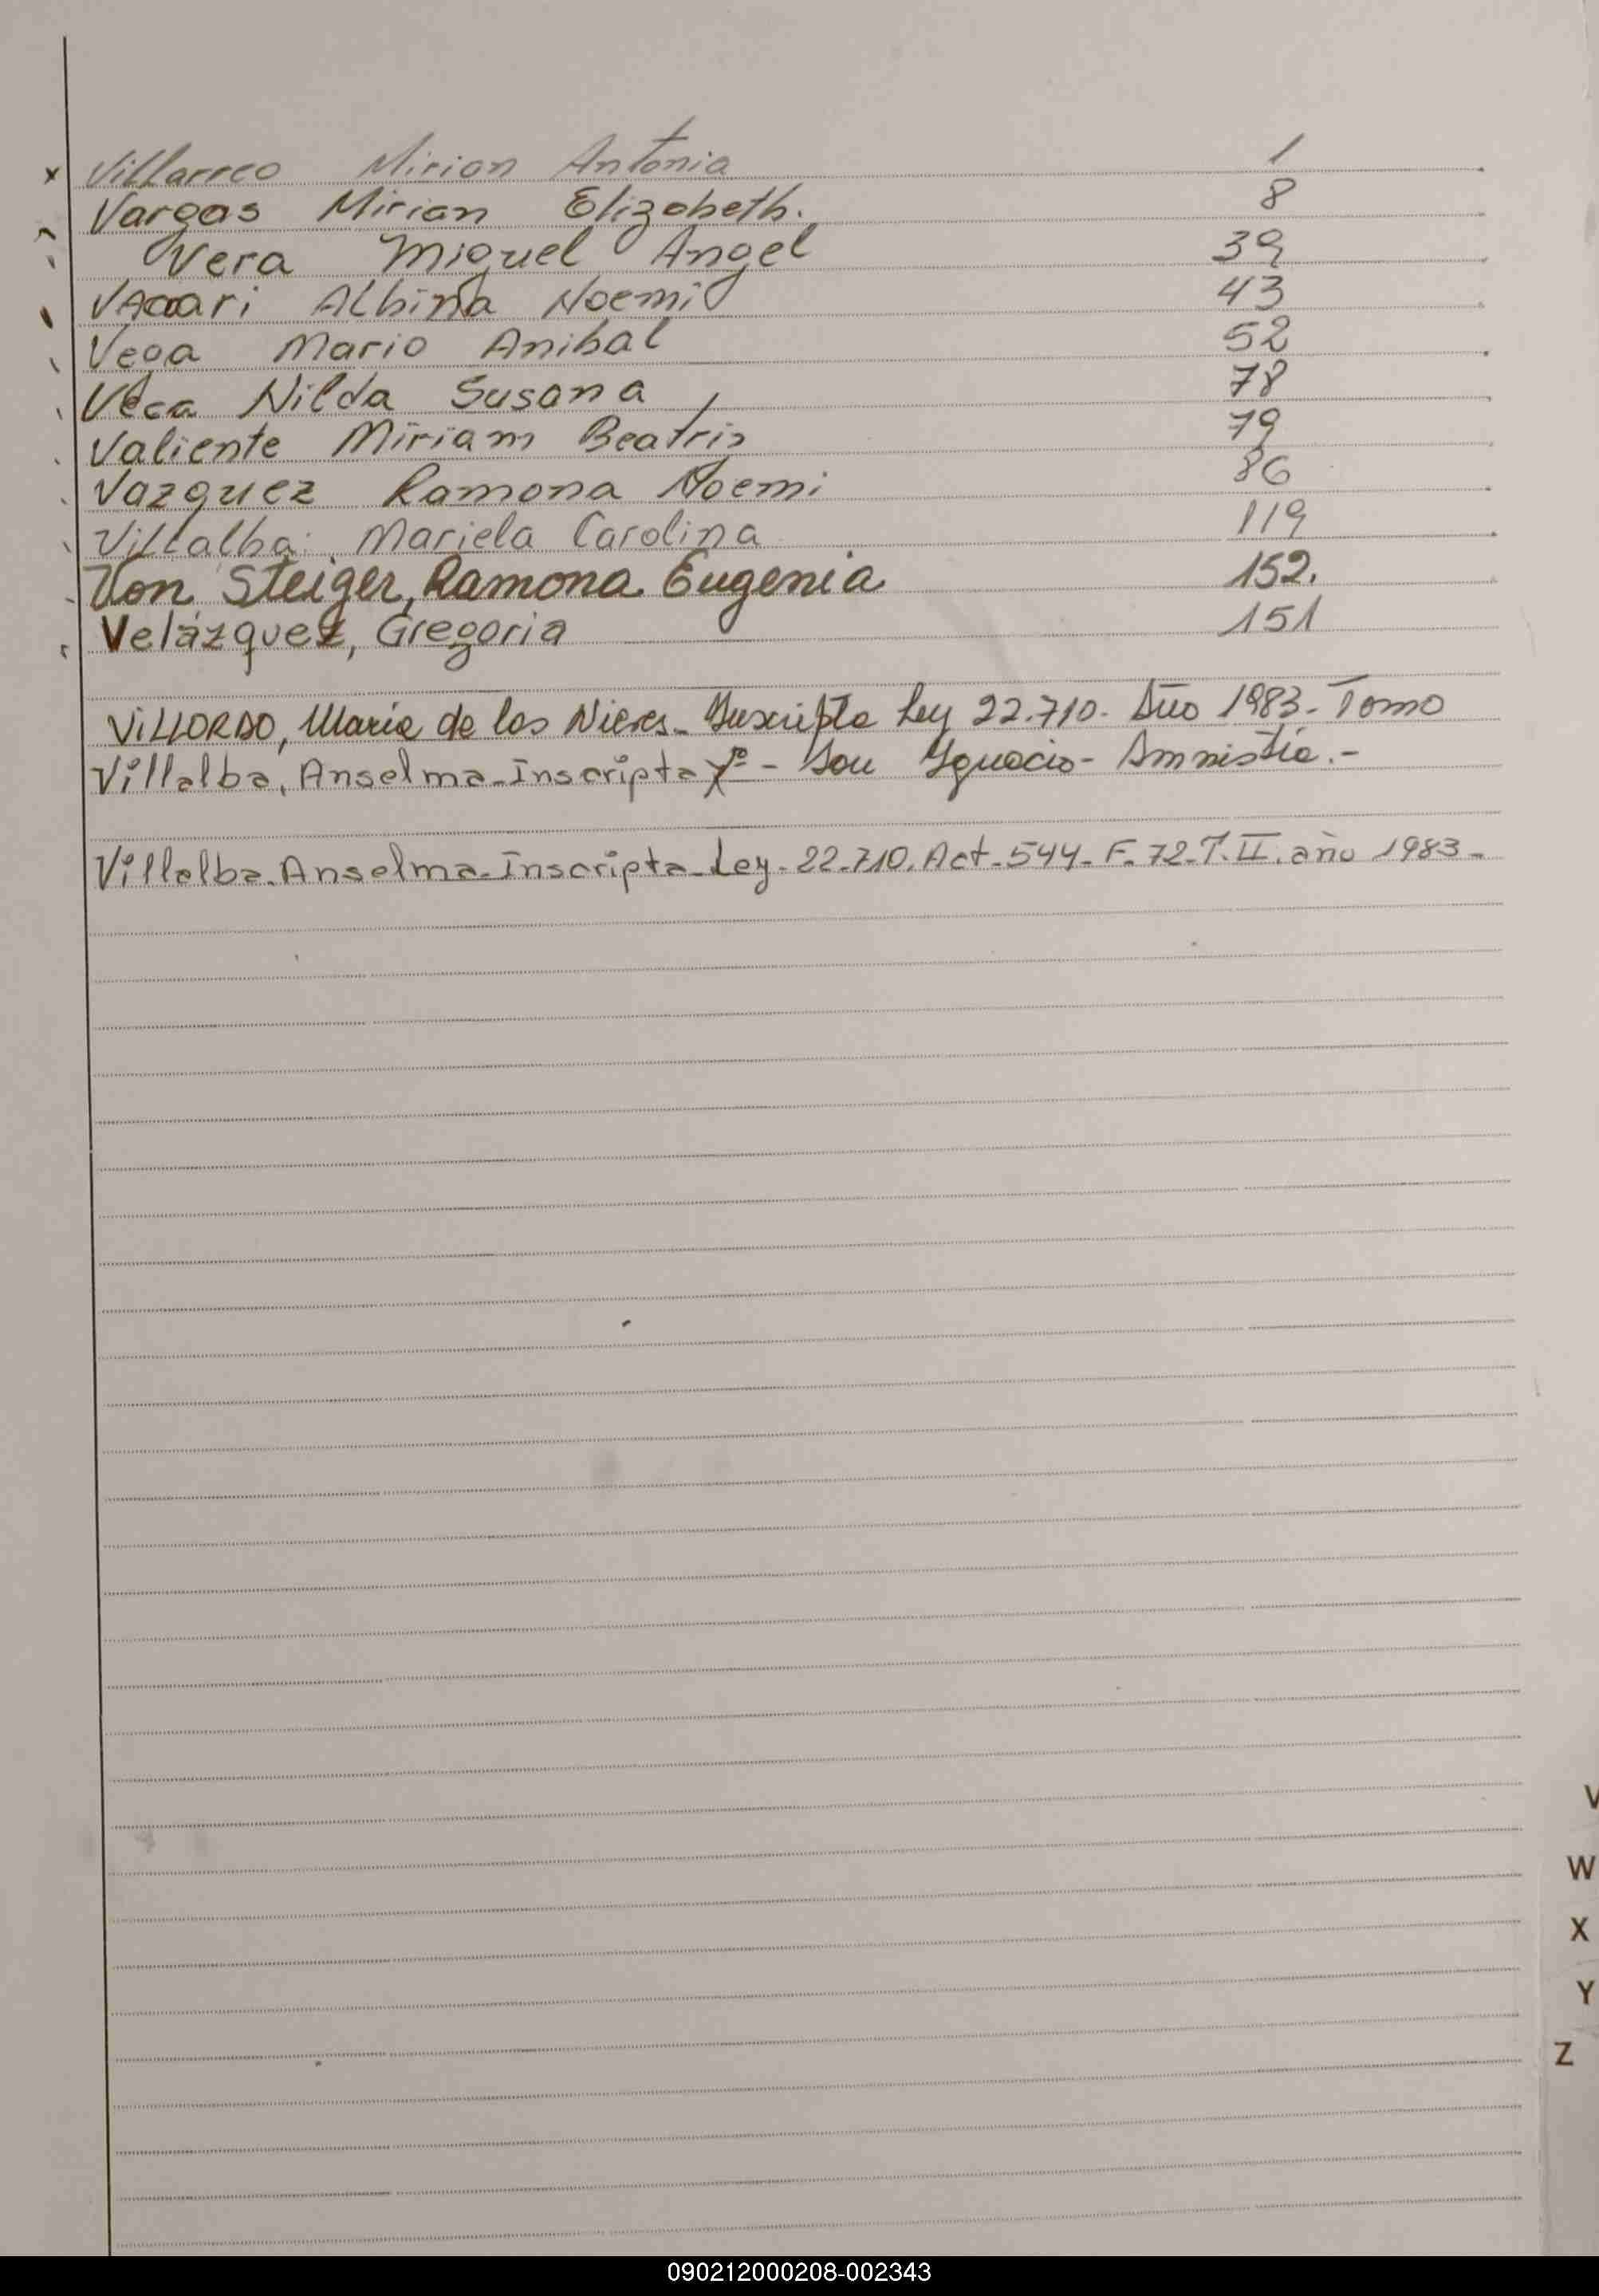 Villarreo Mirian Antonia 1
Vargas Mirian Elizabeth. 8
Vera Miguel Angel 39
VAccari Albina Noemi 43
Vega Mario Anibal 52
Nilda Susana 78
Valiente Miriam Beatris 79
Vazquez Ramona Noemi 86
Villalba Mariela Carolina 119
Von Steiger, Ramona Eugenia 152.
Velázquez, Gregoria 151
ViLLORDO, María de las Nieves - Inscripta Ley 22.710 - Año 1983 - Tomo
Villalba, Anselma - Inscripta - Ignacio - Amnistía.-
Villalba - Anselma - Inscripta - Ley - 22.710. Act - 544 - F. 72 - T. II. año 1983 -
V
W
X
Y
Z
090212000208-002343